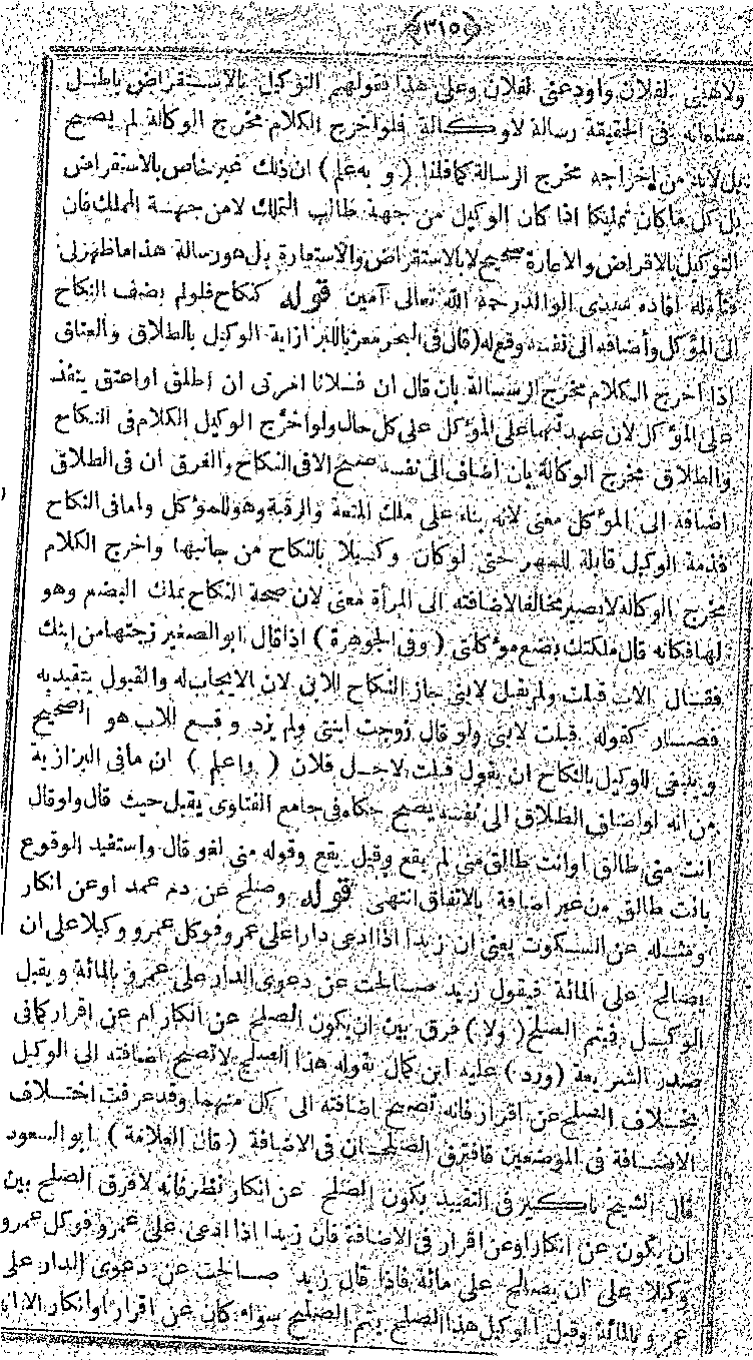 ﴿٣١٥﴾
ولاهبنى لفلان واودعنى لفلان وعلى هذا فقولهم التوكيل بالاستقراض باطل
معناه انه فى الحقيقة رسالة لاوكالة فلو اخرج الكلام مخرج الوكالة لم يصح
بل لابد من اخراجه مخرج الرسالة كما قلنا ( وبه علم ) ان ذلك غير خاص بالاستقراض
بل كل ما كان تمليكا اذا كان الوكيل من جهة طالب التملك لا من جهة المملك فان
التوكيل بالاقراض والاعارة صحيح لا بالاستقراض والاستعارة بل هو رسالة هذا ما ظهر لى
فتأمله افاده سيدى الوالد رحمه الله تعالى آمين قوله كنكاح فلو لم يضف النكاح
الى المؤكل وأضافه الى نفسه وقع له (قال فى البحر معزيا للبزازية الوكيل بالطلاق والعتاق
اذا اخرج الكلام مخرج الرسالة بان قال ان فلانا امرنى ان اطلق او اعتق ينفذ
على المؤكل لان عهدتهما على المؤكل على كل حال ولو اخرج الوكيل الكلام فى النكاح
والطلاق مخرج الوكالة بان اضاف الى نفسه صحيح الا فى النكاح والفرق ان فى الطلاق
اضافة الى المؤكل معنى لانه بناء على ملك المتعة والرقبة وهو للمؤكل واما فى النكاح
فذمة الوكيل قابلة للمهر حتى لو كان وكيلا بالنكاح من جانبها واخرج الكلام
مخرج الوكالة لا يصير مخالفا لاضافته الى المرأة معنى لان صحة النكاح بملك البضع وهو
لها فكانه قال ملكتك بضع مؤكلتى ( وفى الجوهرة ) اذا قال ابو الصغير زوجتها من ابنك
فقال الاب قبلت ولم يقل لابنى جاز النكاح للابن لان الايجاب له والقبول يتقيد به
فصار كقوله قبلت لابنى ولو قال زوجت ابنتى ولم يزد وقع للاب هو الصحيح
وينبغى للوكيل بالنكاح ان يقول قبلت لاجل فلان ( واعلم ) ان ما فى البزازية
من انه لو اضاف الطلاق الى نفسه يصح حكاه فى جامع الفتاوى بقيل حيث قال ولو قال
انت منى طالق او انت طالق منى لم يقع وقيل يقع وقوله منى لغو قال واستفيد الوقوع
بانت طالق من غير اضافة بالاتفاق انتهى قوله وصلح عن دم عمد او عن انكار
ومثله عن السكوت يعنى ان زيدا اذا ادعى دارا على عمرو فوكل عمرو وكيلا على ان
يصالح على المائة فيقول زيد صالحت عن دعوى الدار على عمرو بالمائة ويقبل
الوكيل فيتم الصلح ( ولا ) فرق بين ان يكون الصلح عن انكار ام عن اقرار كما فى
صدر الشريعة (ورد) عليه ابن كمال بقوله هذا الصلح لا تصح اضافته الى الوكيل
بخلاف الصلح عن اقرار فانه تصح اضافته الى كل منهما وقد عرفت اختلاف
الاضافة فى الموضعين فافترق الصلحان فى الاضافة ( قال العلامة ) ابو السعود
قال الشيخ باكير فى التقييد بكون الصلح عن انكار نظر فانه لا فرق الصلح بين
ان يكون عن انكار او عن اقرار فى الاضافة فان زيدا اذا ادعى على عمرو فوكل عمرو
وكيلا على ان يصالح على مائة فاذا قال زيد صالحت عن دعوى الدار على
عمرو بالمائة وقبل الوكيل هذا الصلح يتم الصلح سواء كان عن اقرار او انكار الا ان